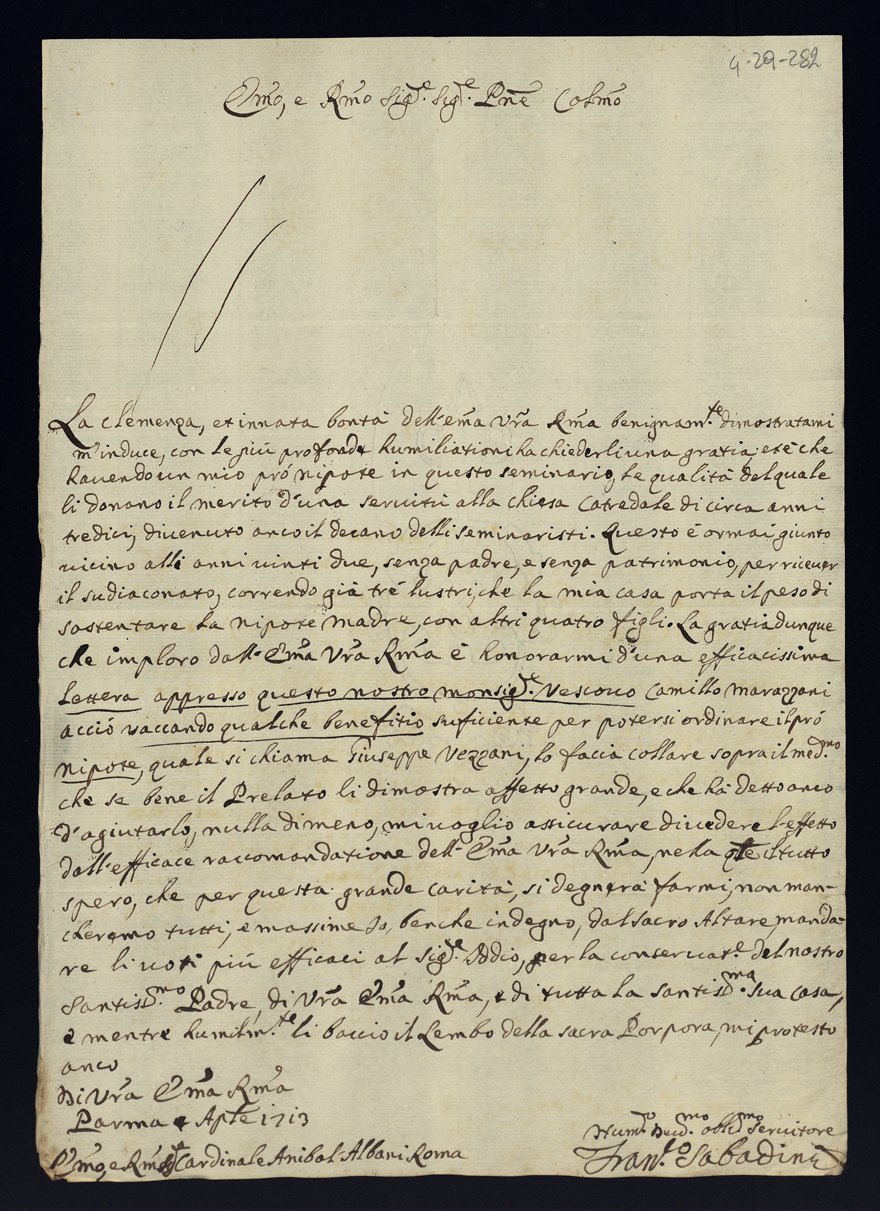 4-29-282
Em̃o, e Rm̃o Sig.re Sig.re Pñe Colmo
La Clemenza, et innata bontà dell'Em̃a Vr̃a Rm̃a benignam.te dimostratami
m'induce, con le più profonde humiliationi ha chiederli una gratia, et è che
havendo un mio prónipote in questo seminario, le qualità del quale
li donano il merito d'una servitù alla chiesa Catredale di circa anni
tredici, divenuto anco il decano delli seminaristi. Questo è ormai giunto
vicino alli anni vinti due, senza padre, e senza patrimonio, per ricever
il sudiaconato, correndo già trè lustri, che la mia casa porta il peso di
sostentare la nipote Madre, con altri quatro figli. La gratia dunque
che imploro dall'Em̃a Vr̃a Rm̃a è honorarmi d'una efficacissima
lettera appresso questo nostro monsig.re Vescovo Camillo Marazzani
acciò vaccando qualche benefitio suficiente per potersi ordinare il pró
nipote, quale si chiama Giuseppe Vezzani, lo facia collare sopra il med.mo
che se bene il Prelato li dimostra affetto grande, e che hà detto anco
d'agiutarlo, nulla di meno, mi voglio assicurare di vedere l'effetto
dall'efficace raccomandatione dell'Em̃a Vr̃a Rm̃a, nella qle il tutto
spero, che per questa grande carità, si degnerà farmi, non man-
cheremo tutti, e massime Io, benche indegno, dal sacro Altare, manda-
re li voti più efficaci al Sig.re Iddio, per la conservat.e del nostro
Santiss.mo Padre, di Vr̃a Em̃a Rm̃a, e di tutta la santiss.ma sua Casa,
e mentre humilm.te li baccio il Lembo della sacra Porpora, mi protesto
anco
Di Vr̃a Em̃a Rm̃a
Parma 4 Aple 1713
Hum.o Dev.mo obl.mo Servitore
Em̃o, e Rm̃o Sig.re Cardinale Anibal Albani Roma
Fran.co Sabadini